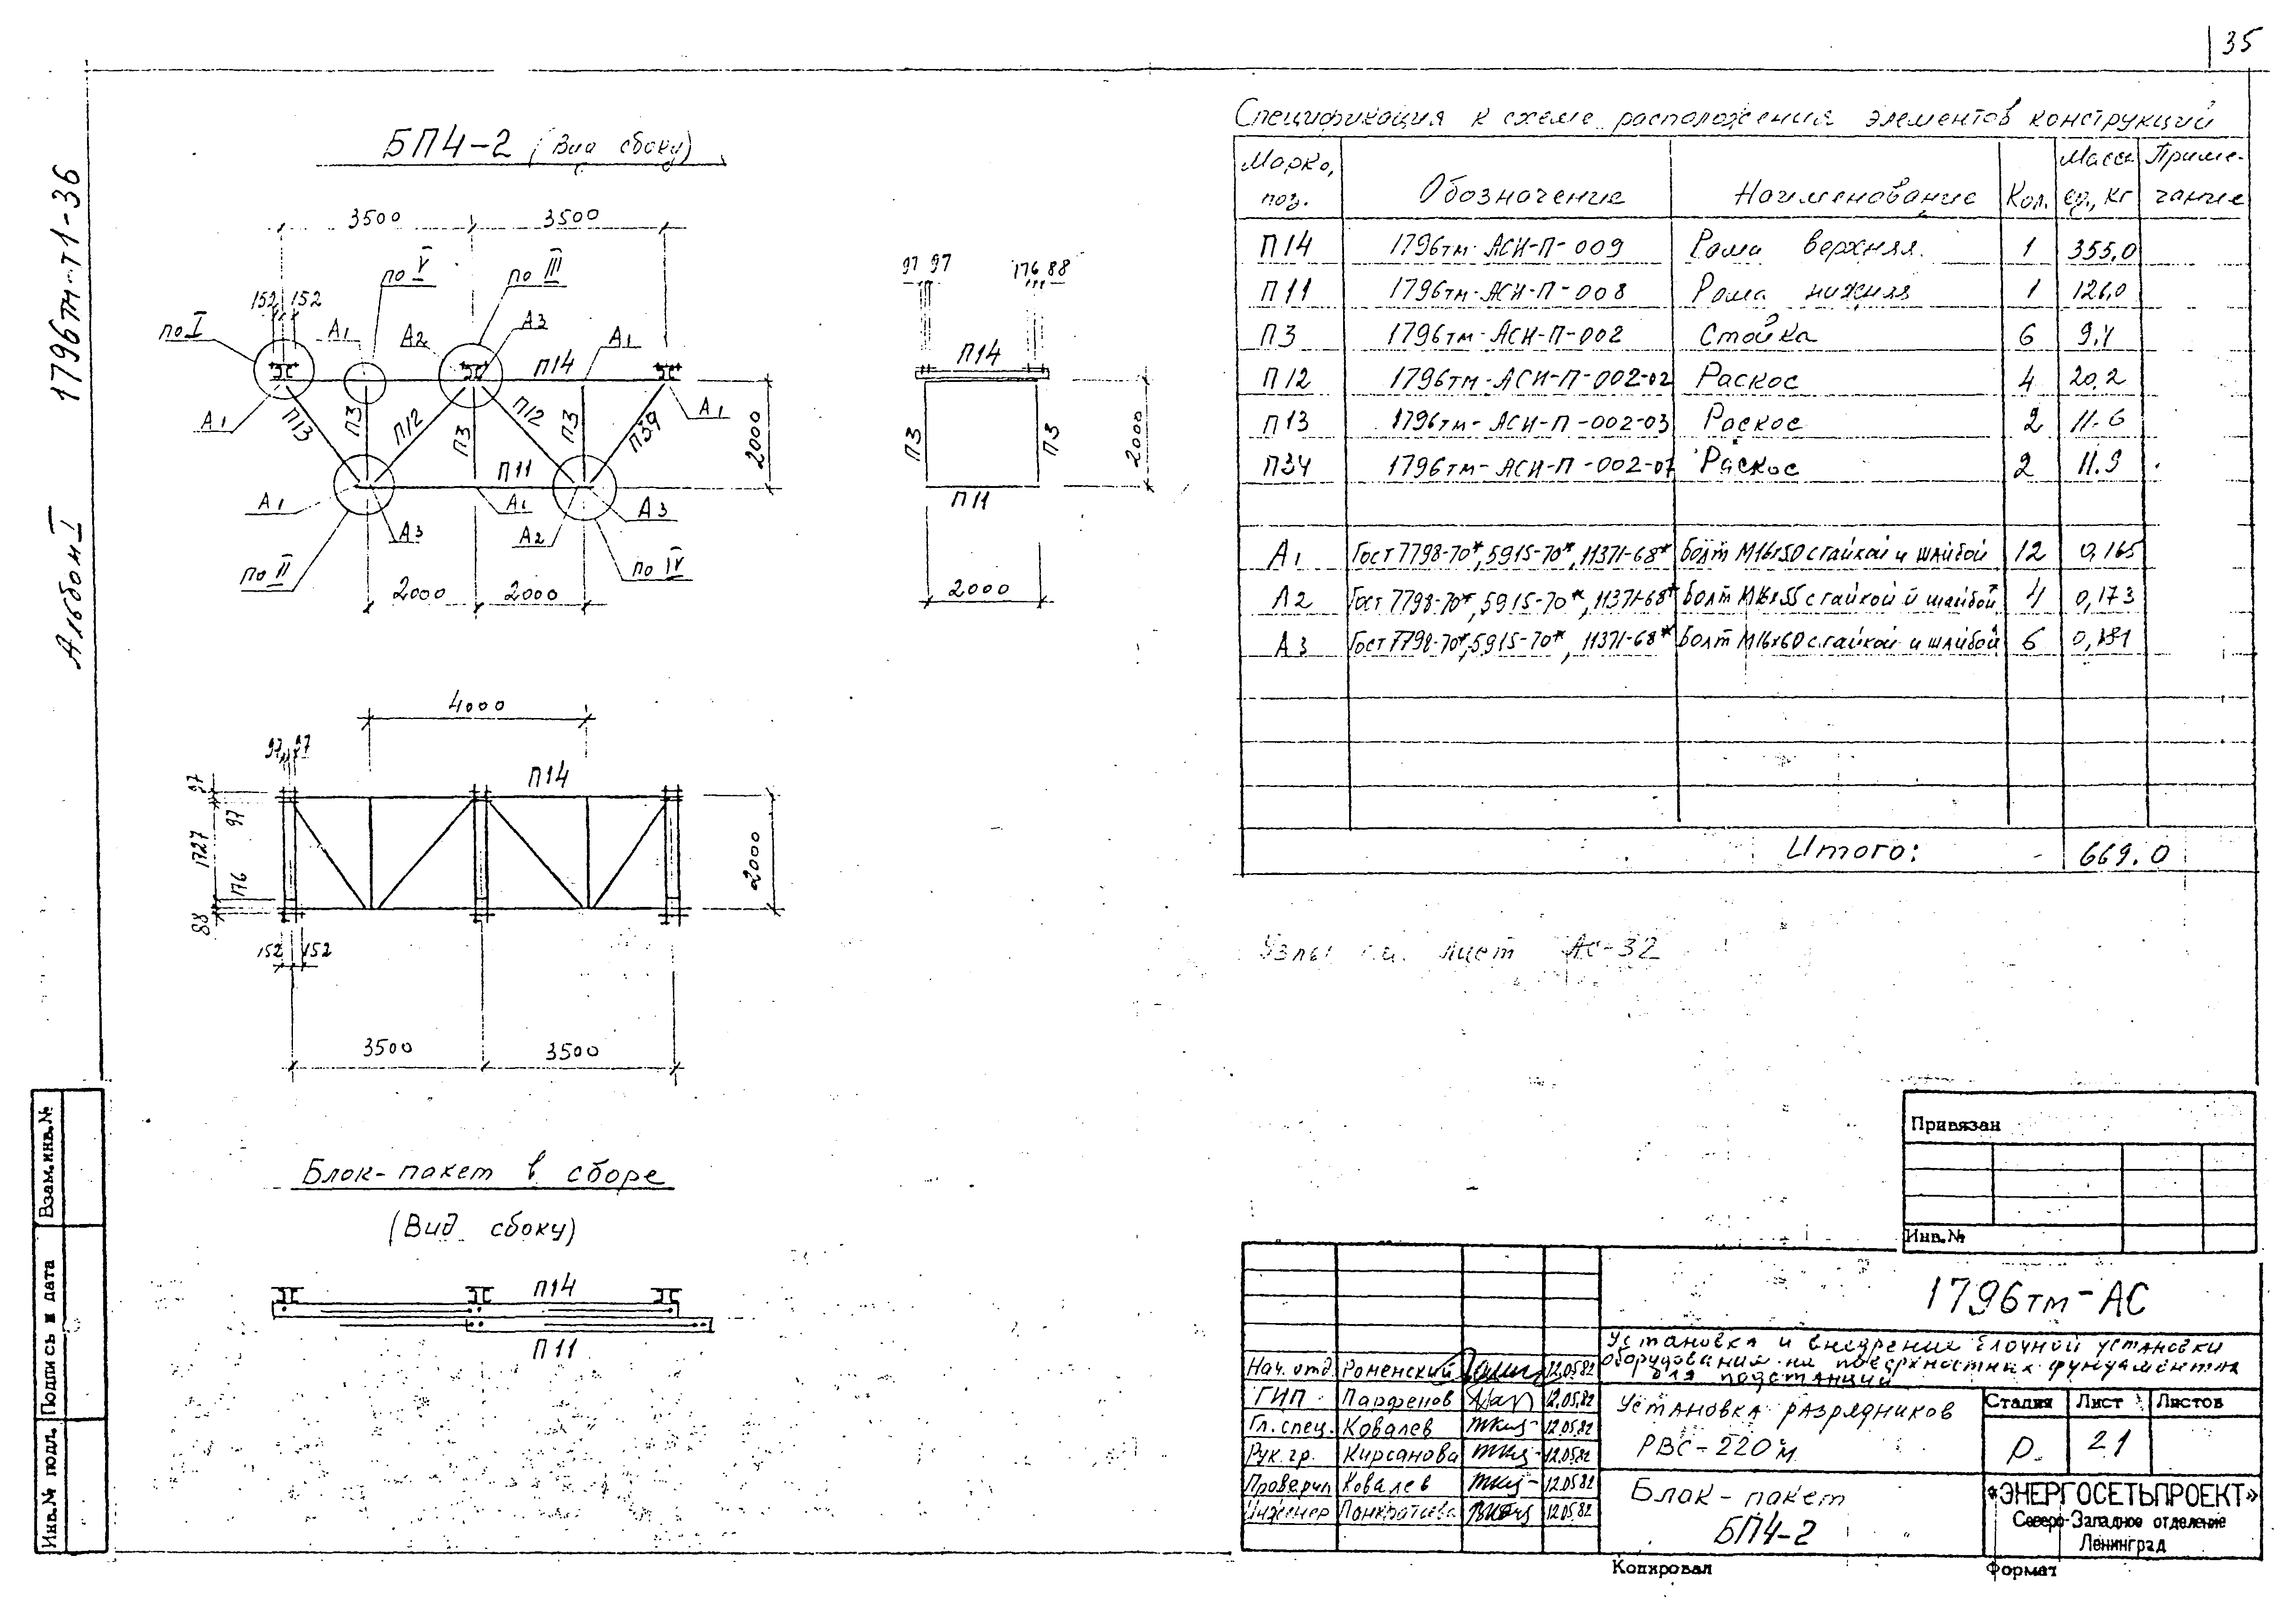 35
1796тм-т1-36
Альбом I
БП4-2 (Вид сбоку)
3500 3500
по V по III
152 152
по I А1 А2 А3 А1
П14
А1 П13 П3 П12 П3 П12 П3 П39 А1
2000
П11
А1 А3 А1 А2 А3
по II по IV
2000 2000
97 97 176 88
П14
П3 П3
2000
П11
2000
4000
97 97
П14
97
97
1727
176
88
2000
152 152
3500 3500
Блок-пакет в сборе
(Вид сбоку)
П14
П11
Спецификация к схеме расположения элементов конструкций
Марка, поз. Обозначение Наименование Кол. Масса ед., кг Примечание
П14 1796тм-АСИ-П-009 Рама верхняя 1 355,0
П11 1796тм-АСИ-П-008 Рама нижняя 1 126,0
П3 1796тм-АСИ-П-002 Стойка 6 9,4
П12 1796тм-АСИ-П-002-02 Раскос 4 20,2
П13 1796тм-АСИ-П-002-03 Раскос 2 11.6
П34 1796тм-АСИ-П-002-07 Раскос 2 11.9
А1 Гост 7798-70*, 5915-70*, 11371-68* Болт М16х50 с гайкой и шайбой 12 0,165
А2 Гост 7798-70*, 5915-70*, 11371-68* Болт М16х55 с гайкой и шайбой 4 0,173
А3 Гост 7798-70*, 5915-70*, 11371-68* Болт М16х60 с гайкой и шайбой 6 0,181
Итого: 669.0
Узлы см. лист АС-32
Привязан
Инв.№
1796тм-АС
Установка и внедрение блочной установки
оборудования на поверхностных фундаментах
для подстанций
Нач. отд. Роменский 12.05.82
ГИП Парфенов 12.05.82
Гл. спец. Ковалев 12.05.82
Рук. гр. Кирсанова 12.05.82
Проверил Ковалев 12.05.82
Инженер Панкратьева 12.05.82
Установка разрядников
РВС-220м
Стадия Лист Листов
Р. 21
Блок-пакет
БП4-2
«ЭНЕРГОСЕТЬПРОЕКТ»
Северо-Западное отделение
Ленинград
Копировал Формат
Взам.инв.№
Подпись и дата
Инв.№ подл.